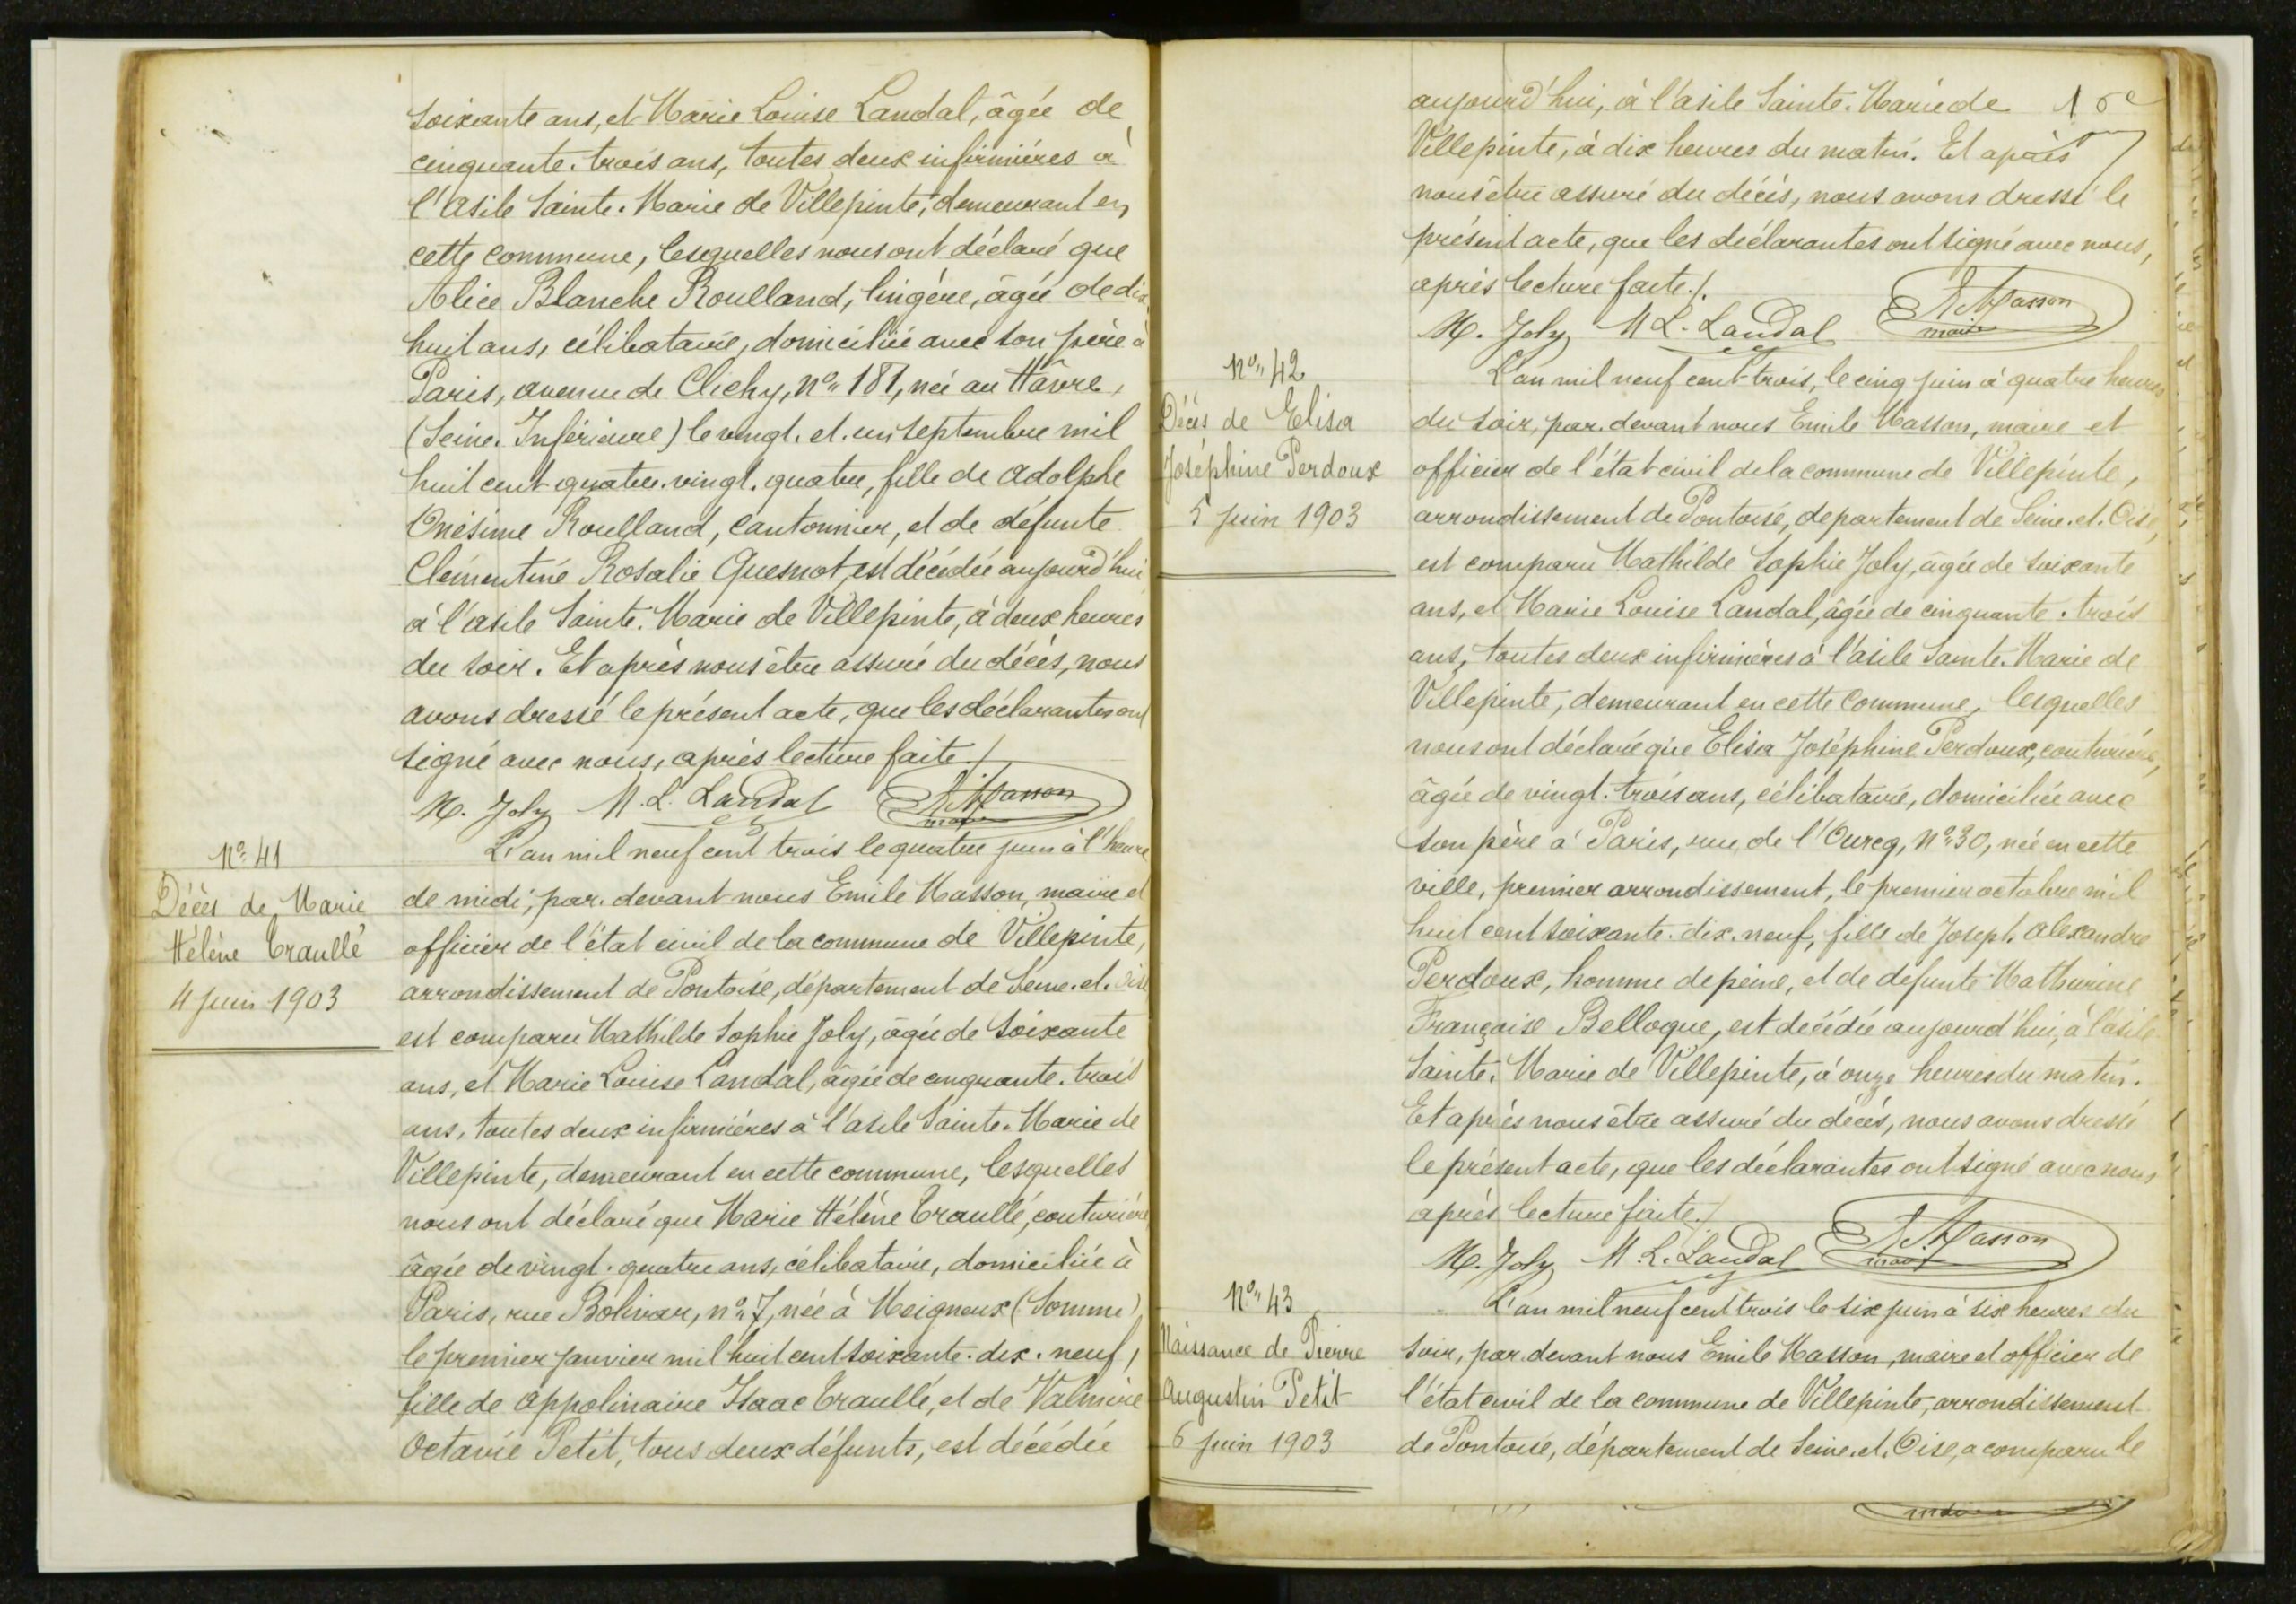 soixante ans, et Marie Louise Landal, âgée de
cinquante-trois ans, toutes deux infirmières à
l'asile Sainte-Marie de Villepinte, demeurant en
cette commune, lesquelles nous ont déclaré que
Alice Blanche Roulland, lingère, âgée de dix-
huit ans, célibataire, domiciliée avec son père à
Paris, avenue de Clichy, n° 181, née au Hâvre,
(Seine-Inférieure) le vingt-et-un septembre mil
huit cent quatre-vingt-quatre, fille de Adolphe
Onésime Roulland, cantonnier, et de défunte
Clémentine Rosalie Quesnot, est décédée aujourd'hui
à l'asile Sainte-Marie de Villepinte, à deux heures
du soir. Et après nous être assuré du décès, nous
avons dressé le présent acte, que les déclarantes ont
signé avec nous, après lecture faite./.
M. Joly M. L. Landal E. Masson
maire
N° 41
Décès de Marie
Hélène Traullé
4 Juin 1903
L'an mil neuf cent trois le quatre juin à l'heure
de midi, par-devant nous Emile Masson, maire et
officier de l'état civil de la commune de Villepinte,
arrondissement de Pontoise, département de Seine-et-Oise
est comparu Mathilde Sophie Joly, âgée de soixante
ans, et Marie Louise Landal, âgée de cinquante-trois
ans, toutes deux infirmières à l'asile Sainte-Marie de
Villepinte, demeurant en cette commune, lesquelles
nous ont déclaré que Marie Hélène Traullé, couturière
âgée de vingt-quatre ans, célibataire, domiciliée à
Paris, rue Bolivar, n° 7, née à Meigneux (Somme)
le premier janvier mil huit cent soixante-dix-neuf,
fille de Appolinaire Isaac Traullé, et de Valmire
Octavie Petit, tous deux défunts, est décédée
aujourd'hui, à l'asile Sainte-Marie de
Villepinte, à dix heures du matin. Et après
nous être assuré du décès, nous avons dressé le
présent acte, que les déclarantes ont signé avec nous,
après lecture faite./.
M. Joly M L. Landal E. Masson
maire
N° 42
Décès de Elisa
Joséphine Perdoux
5 Juin 1903
L'an mil neuf cent trois, le cinq juin à quatre heures
du soir, par-devant nous Emile Masson, maire et
officier de l'état civil de la commune de Villepinte,
arrondissement de Pontoise, département de Seine-et-Oise,
est comparu Mathilde Sophie Joly, âgée de soixante
ans, et Marie Louise Landal, âgée de cinquante-trois
ans, toutes deux infirmières à l'asile Sainte-Marie de
Villepinte, demeurant en cette commune, lesquelles
nous ont déclaré que Elisa Joséphine Perdoux, couturière,
âgée de vingt-trois ans, célibataire, domiciliée avec
son père à Paris, rue de l'Ourcq, N° 30, née en cette
ville, premier arrondissement, le premier octobre mil
huit cent soixante-dix-neuf, fille de Joseph Alexandre
Perdoux, homme de peine, et de défunte Mathurine
Françoise Belloque, est décédée aujourd'hui, à l'asile
Sainte-Marie de Villepinte, à onze heures du matin.
Et après nous être assuré du décès, nous avons dressé
le présent acte, que les déclarantes ont signé avec nous,
après lecture faite./.
M. Joly M. L. Landal E. Masson
maire
N° 43
Naissance de Pierre
Augustin Petit
6 Juin 1903
L'an mil neuf cent trois le six juin à six heures du
soir, par-devant nous Emile Masson, maire et officier de
l'état civil de la commune de Villepinte, arrondissement
de Pontoise, département de Seine-et-Oise, a comparu le
maire